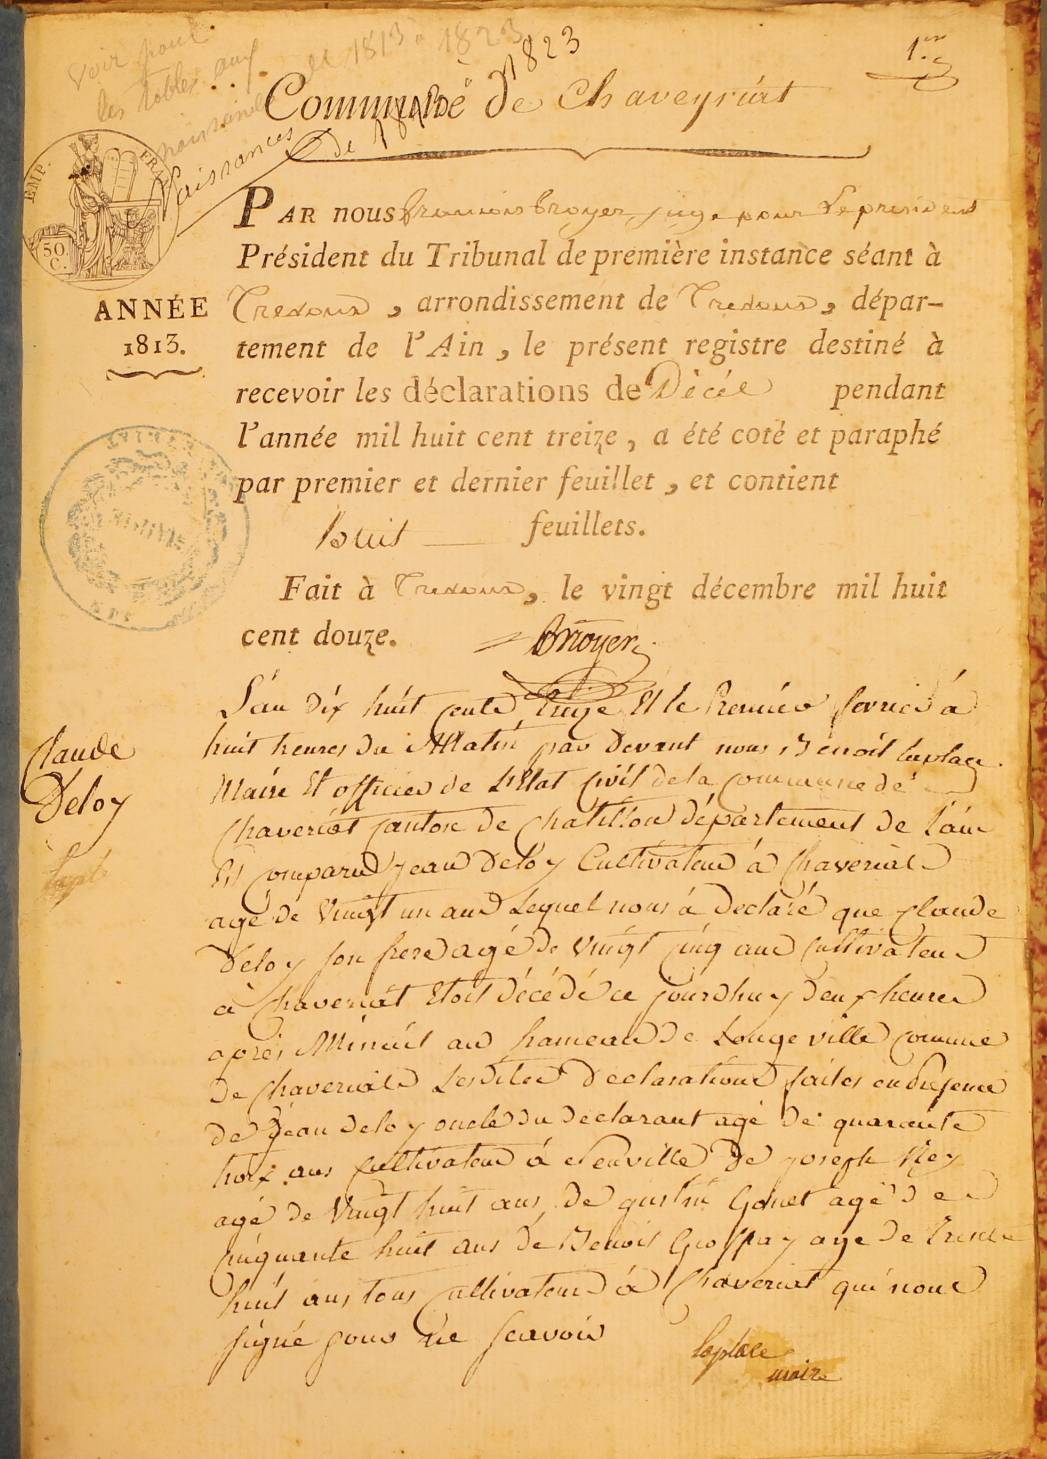 voir pour
les tables aux
de 1813 à 1823
1.er
Commune de Chaveyriat
Naissances de 1813 à 1823
EMP. FRAN
50 C.
PAR nous françois broyer juge pour Le president
Président du Tribunal de première instance séant à
Trevoux, arrondissement de Trevoux, dépar-
ANNÉE
1813.
tement de l'Ain, le présent registre destiné à
recevoir les déclarations de Décés pendant
l'année mil huit cent treize, a été coté et paraphé
par premier et dernier feuillet, et contient
huit feuillets.
Fait à Trevoux, le vingt décembre mil huit
cent douze. Broyer
L'an dix huit cents treize Et le Premier fevrier à
huit heures du Matin par Devant nous Benoit Laplace
Claude
Deloy
Maire Et officier de L'Etat Civil de la Commune de
Chaveriat Canton de Chatillon département de L'ain
Est Comparu Jean Deloy Cultivateur à Chaveriat
agé de Vingt un ans Lequel nous à Declaré que Claude
Deloy son frere agé de Vingt Cinq ans Cultivateur
à Chaveriat Etoit décédé ce jourdhuy deux heures
après Minuit au hameau de Longeville Commune
de Chaveriat Lesdites Declarations faites en Présence
de Jean Deloy oncle du declarant agé de quarante
trois ans Cultivateur à Neuville De joseph Rey
agé de Vingt huit ans de Gonet agé de
Cinquante huit ans de Benoit agé de Trente
huit ans tous Cultivateurs à Chaveriat qui nont
signé pour ne scavoir
Laplace
maire